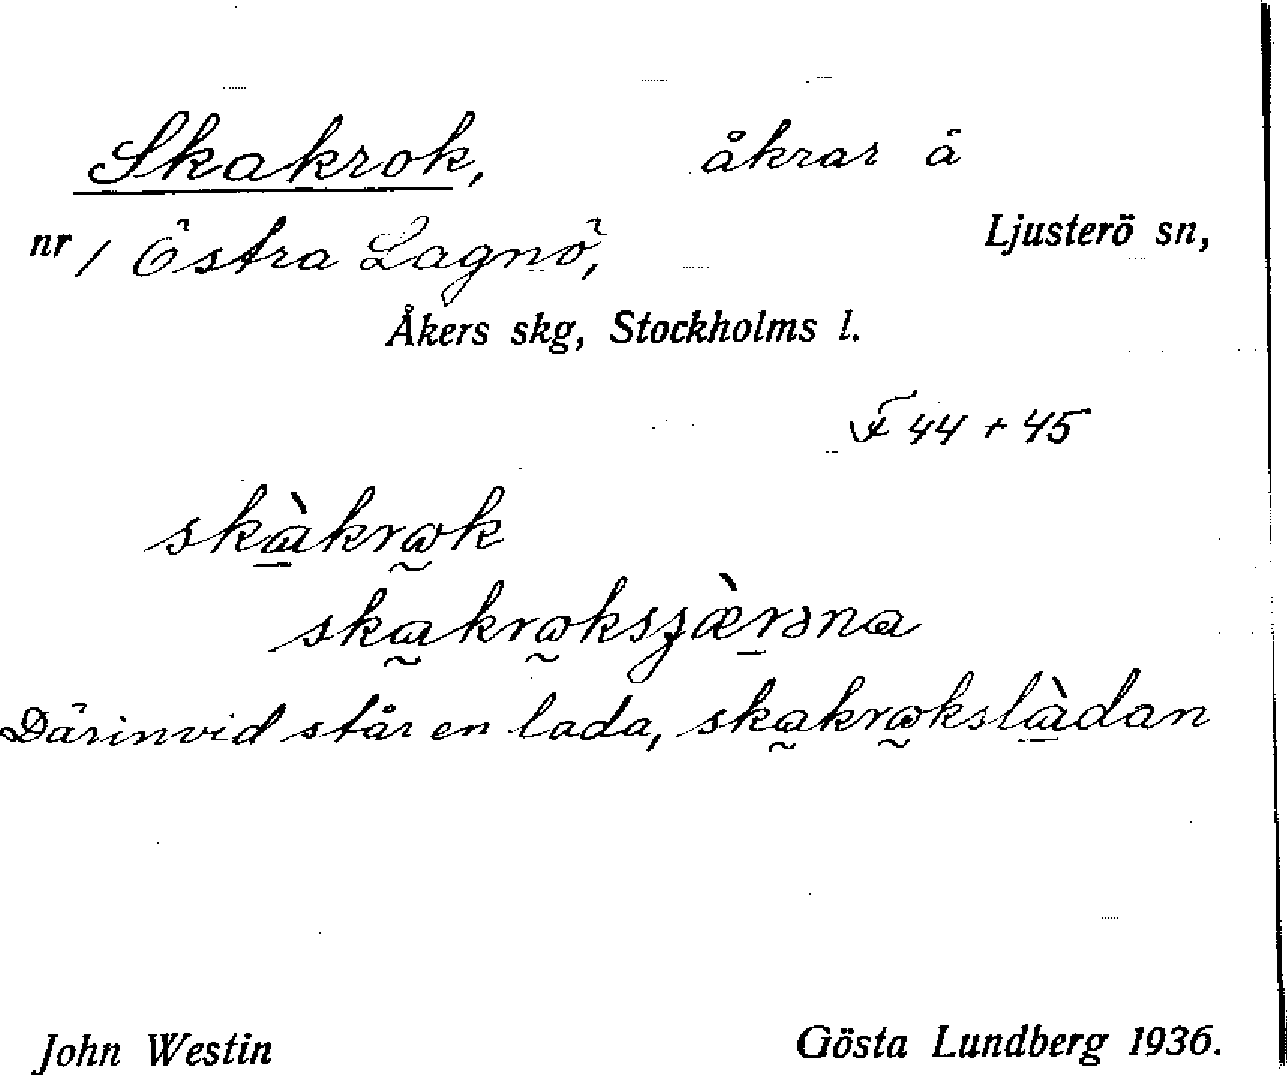 Skakrok, åkrar å
nr 1 Östra Lagnö, Ljusterö sn,
Åkers skg, Stockholms l.
F 44 + 45
skɑ̱̀krɷ̰k
skɑ̰krɷ̰ksjæ̀ṟəna
Därinvid står en lada, skɑ̰krɷ̰kslɑ̱̀dan
John Westin Gösta Lundberg 1936.